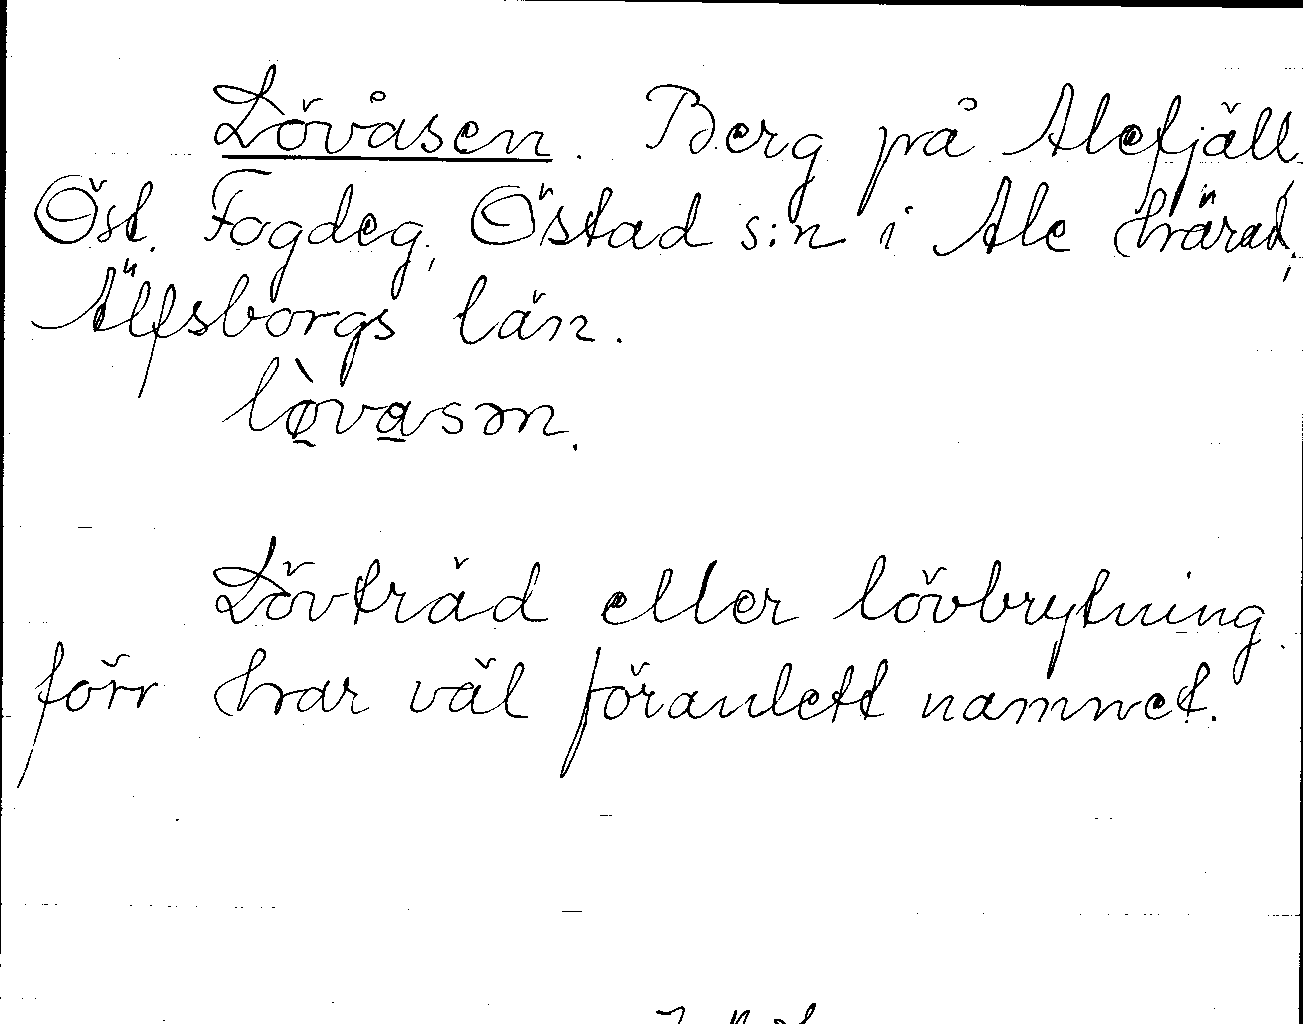 Lövåsen. Berg på Alefjäll
Öst. Fogdeg, Östad s:n i Ale härad,
Älfsborgs län.
lø̀vasən.
Lövträd eller lövbrytning
förr har väl föranlett namnet.